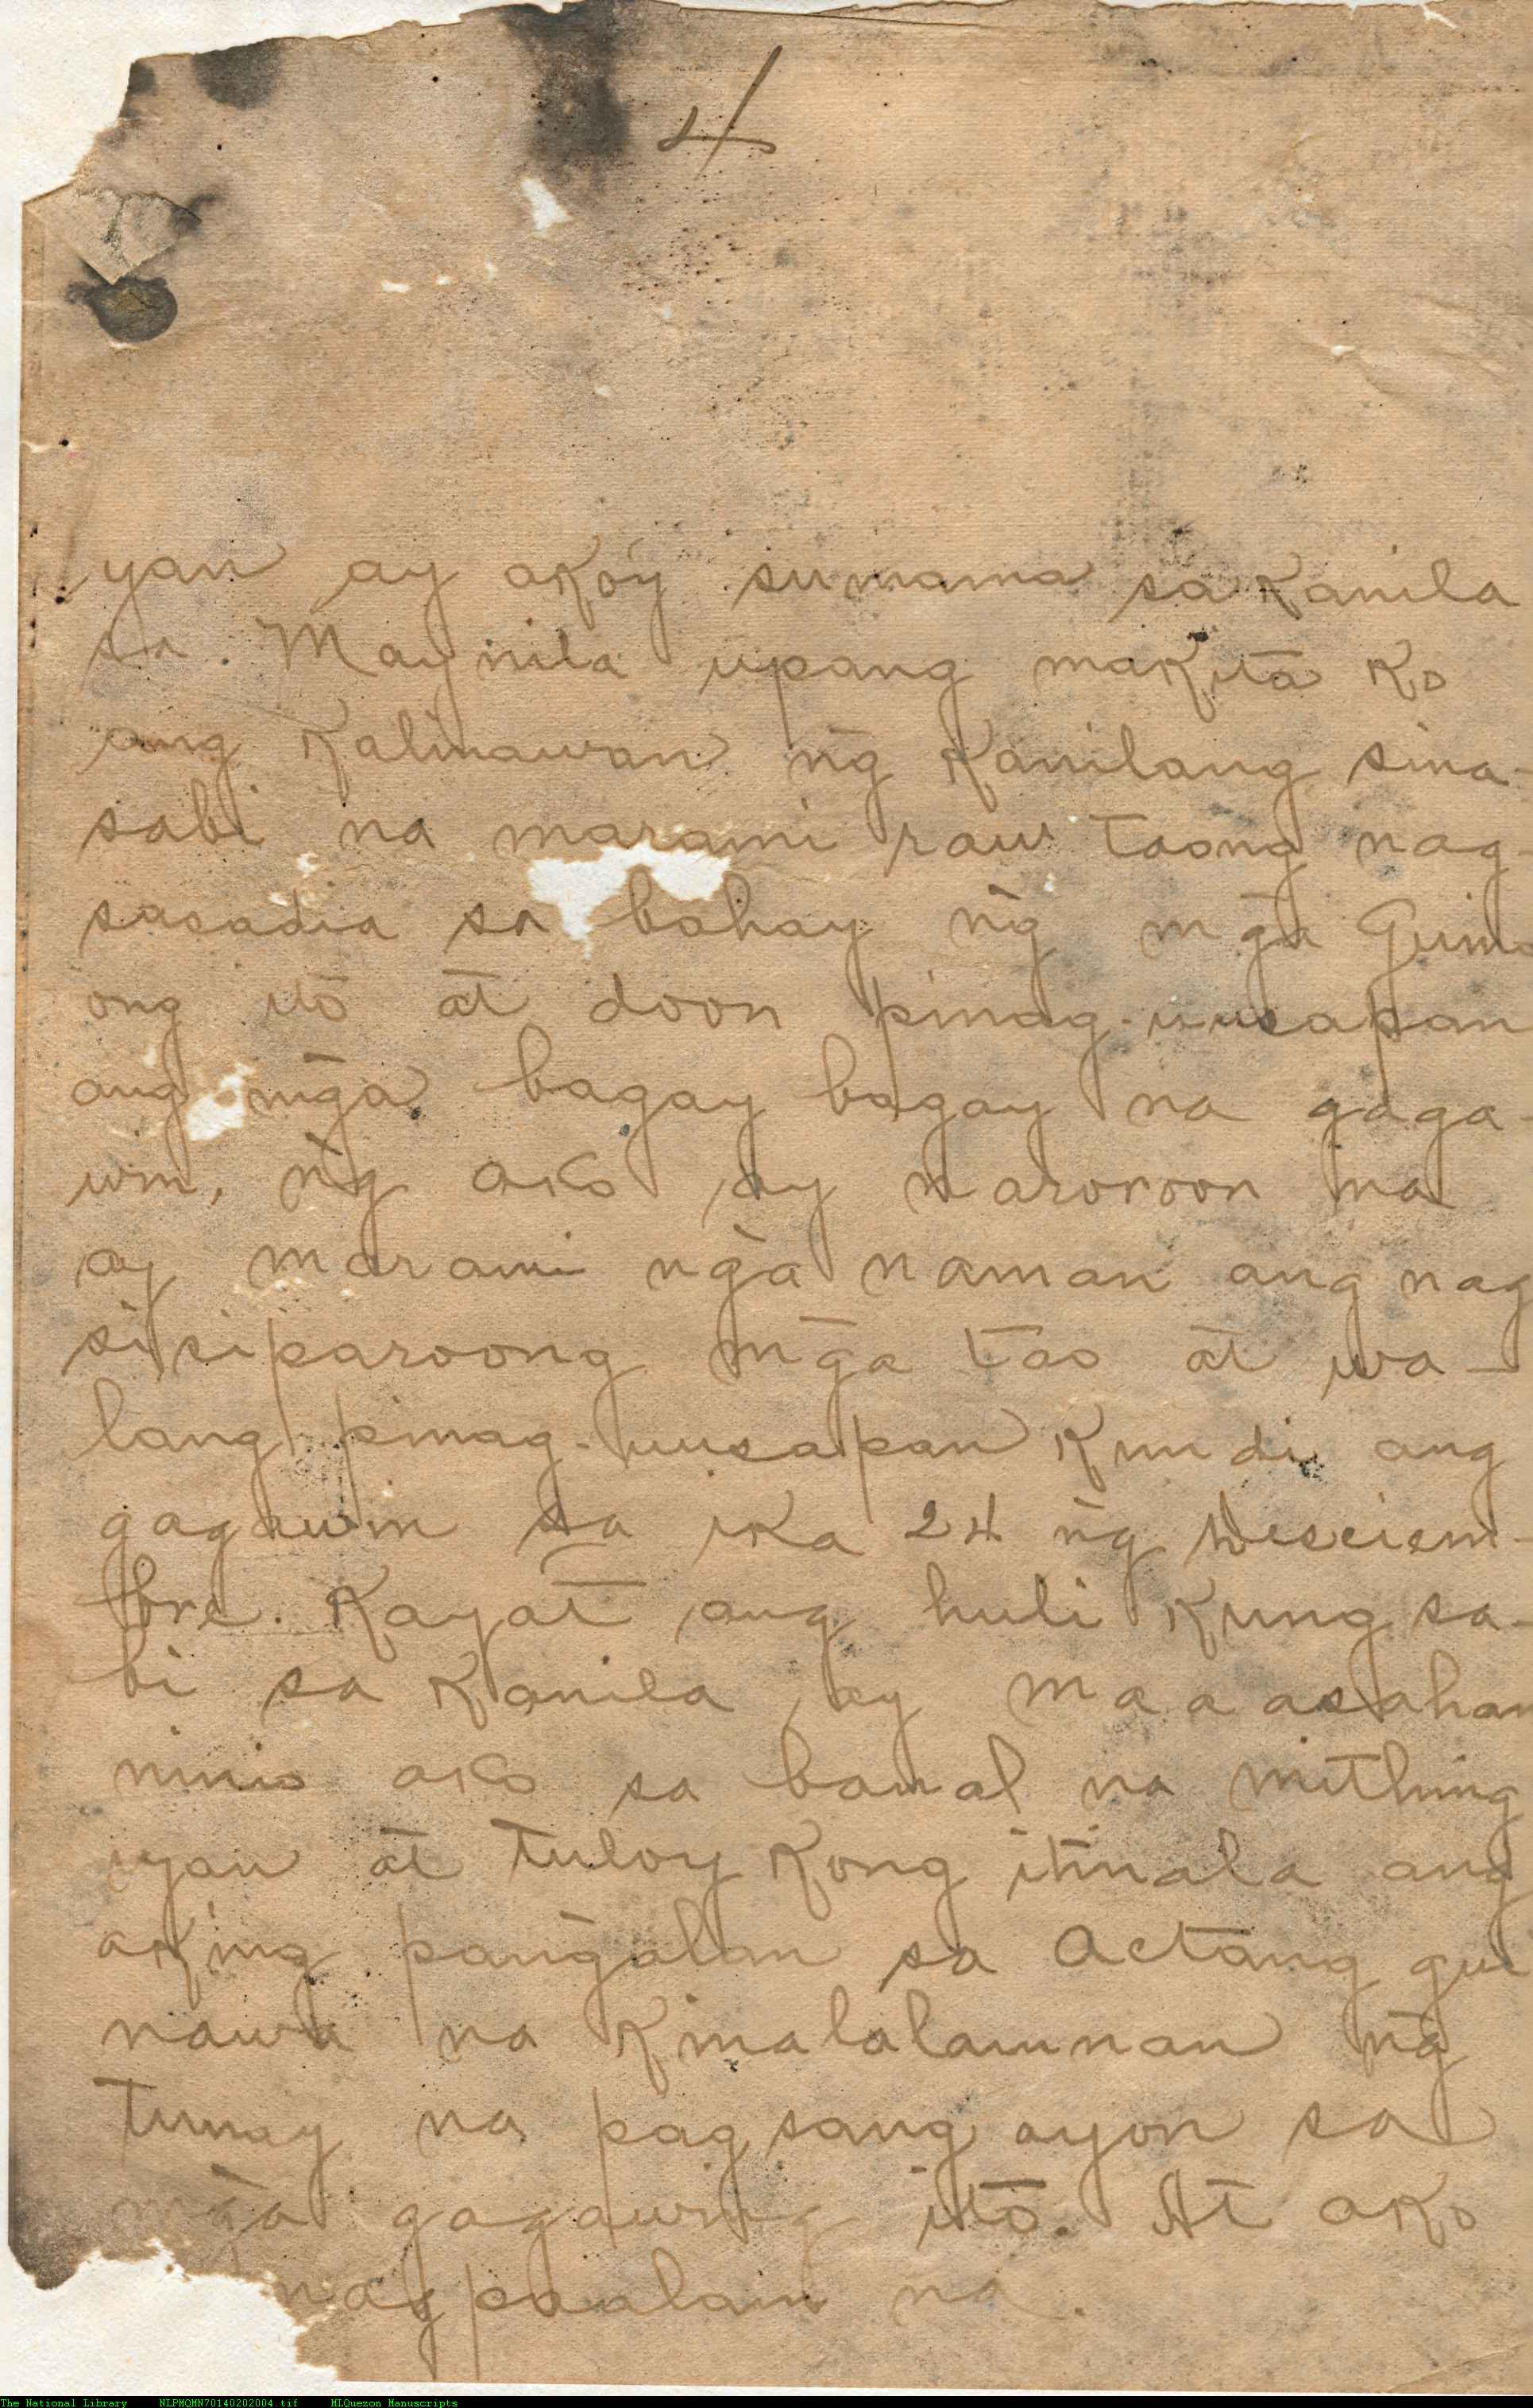 4
yan ay akóy sumama sa kanila
sa Maynila upang makita ko
ang kalinawan n͠g kanilang sina-
sabi na marami raw taong nag-
sasadia sa bahay n͠g m͠ga Guino
ong ito at doon pinag-uusapan
ang m͠ga bagay bagay na gaga-
win, n͠g ako ay naroroon na
ay marami n͠ga naman ang nag
sisiparoong m͠ga tao at wa-
lang pinag-uusapan kundi ang
gagawin sa ika 24 n͠g Disciem-
bre. Kayat ang huli kung sa-
bi sa kanila ay maaasahan
ninio ako sa banal na mithing
iyan at tuloy kong itinala ang
aking pan͠galan sa Actang gui
nawa na kinalalamnan n͠g
tunay na pagsang ayon sa
m͠ga gagawing ito. At ako
nagpaalam na.
The National Library NLPMQMN70140202004.tif MLQuezon Manuscripts